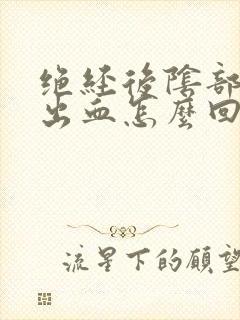 绝經後陰部
出血怎麼回
流星下的願望